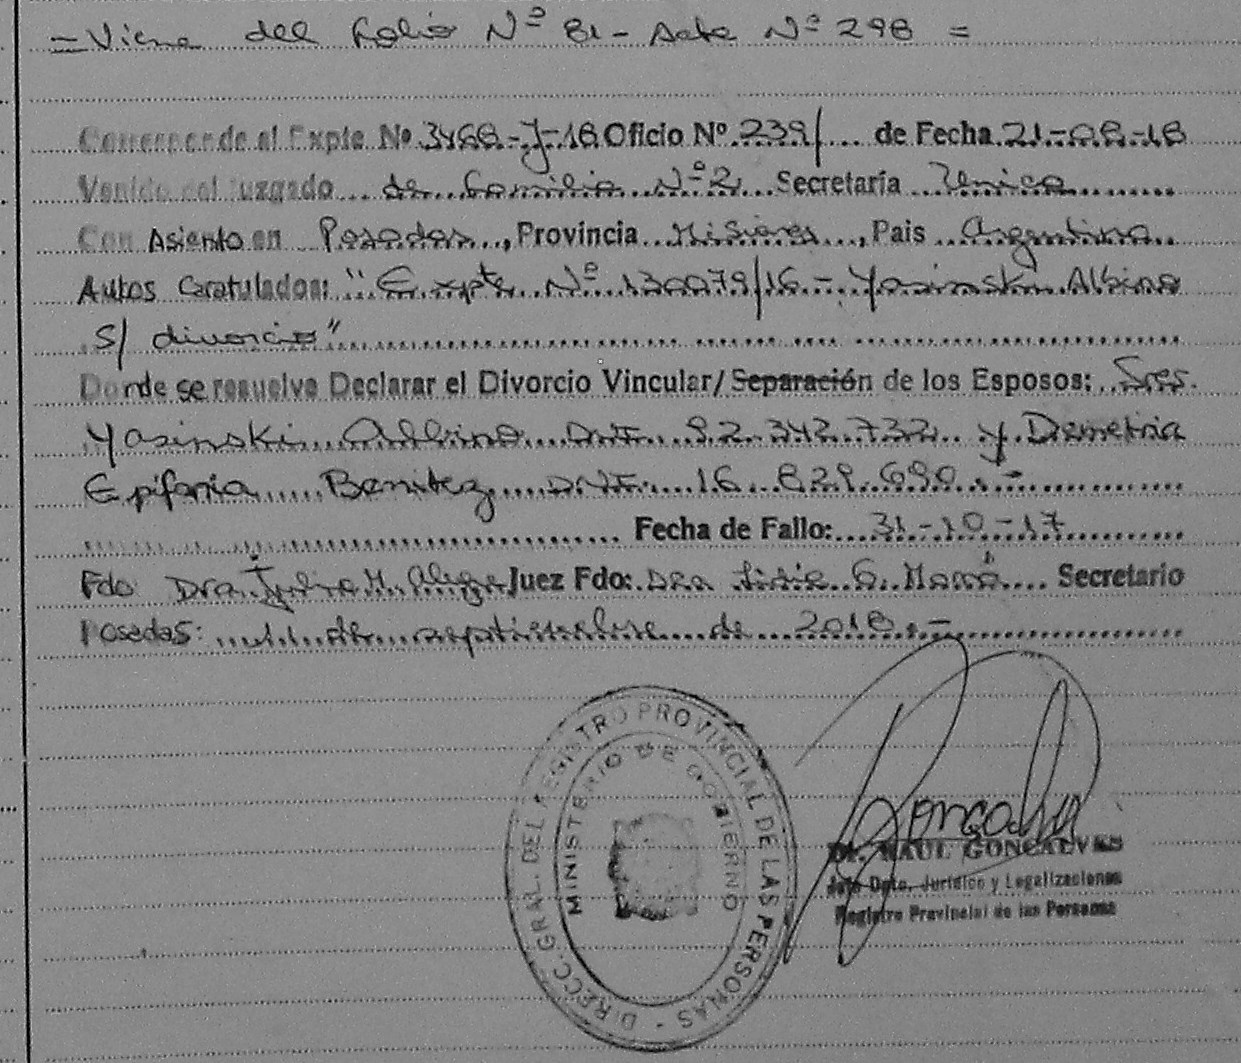 = Viene del folio Nº 81 - Acta Nº 298 =
Corresponde al Expte Nº 3468-J-18 Oficio Nº 239/... de Fecha 21-08-18
Venido del Juzgado de Familia Nº 2 Secretaría Unica
Con Asiento en Posadas, Provincia Misiones, Pais Argentina
Autos Caratulados: "Expte Nº 130079/16 - Yasinski Albino
S/ divorcio"
Donde se resuelve Declarar el Divorcio Vincular/Separación de los Esposos: Sres.
Yasinski Albino DNI. 92.342.732 y Demetria
Epifania Benitez DNI. 16.829.690.-
Fecha de Fallo: 31-10-17
Fdo Dra. Julia M. Alegre Juez Fdo: Dra G. Secretario
Posadas: 11 de septiembre de 2018.-
DIRECC. GRAL. DEL REGISTRO PROVINCIAL DE LAS PERSONAS -
MINISTERIO DE GOBIERNO
Dr. RAUL GONCALVES
Jefe Dpto. Jurídico y Legalizaciones
Registro Provincial de las Personas